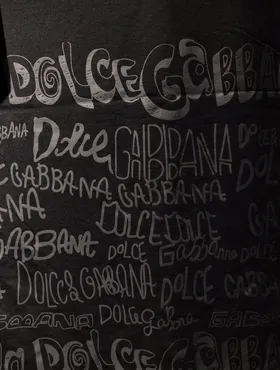 DOLCE GABBAN
BBANA Dolce GABBANA DOLCE
E GABBANA GABBANA
ANA DOLCE DOLCE
GABBANA DOLCE Gabbana
DOLCE & GABBANA DOLCE
DOLCE Gabbana GABBAN
DOLCE GABBA